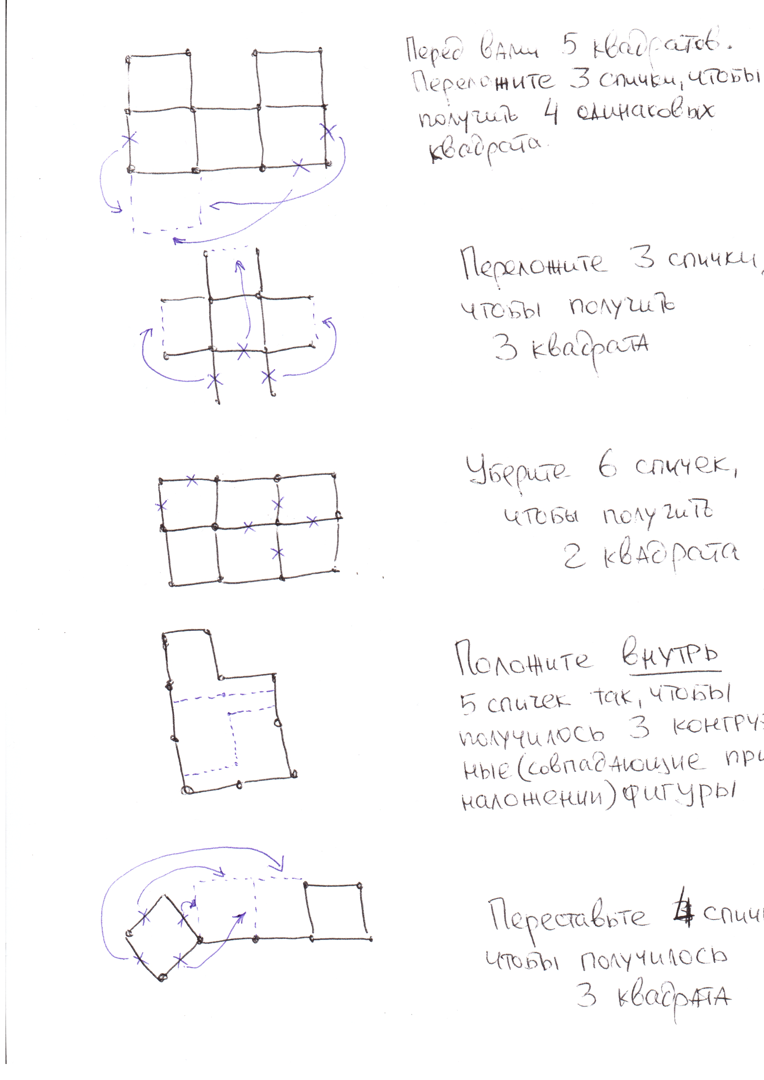 Перед вами 5 квадратов.
Переложите 3 спички, чтобы
получить 4 одинаковых
квадрата.
Переложите 3 спички,
чтобы получить
3 квадрата
Уберите 6 спичек,
чтобы получить
2 квадрата
Положите внутрь
5 спичек так, чтобы
получилось 3 конгру
ные (совпадающие при
наложении) фигуры
Переставьте 4 спич
чтобы получилось
3 квадрата